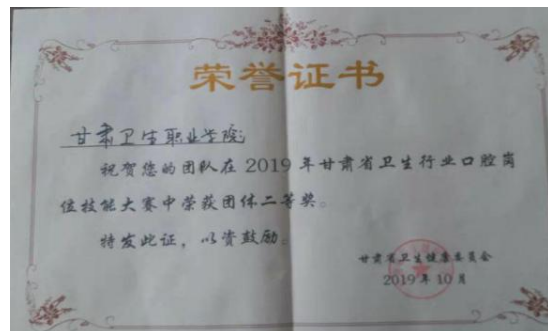 荣誉证书
甘肃卫生职业学院:
祝贺您的团队在 2019 年甘肃省卫生行业口腔岗
位技能大赛中荣获团体二等奖。
特发此证，以资鼓励。
甘肃省卫生健康委员会
2019 年 10 月